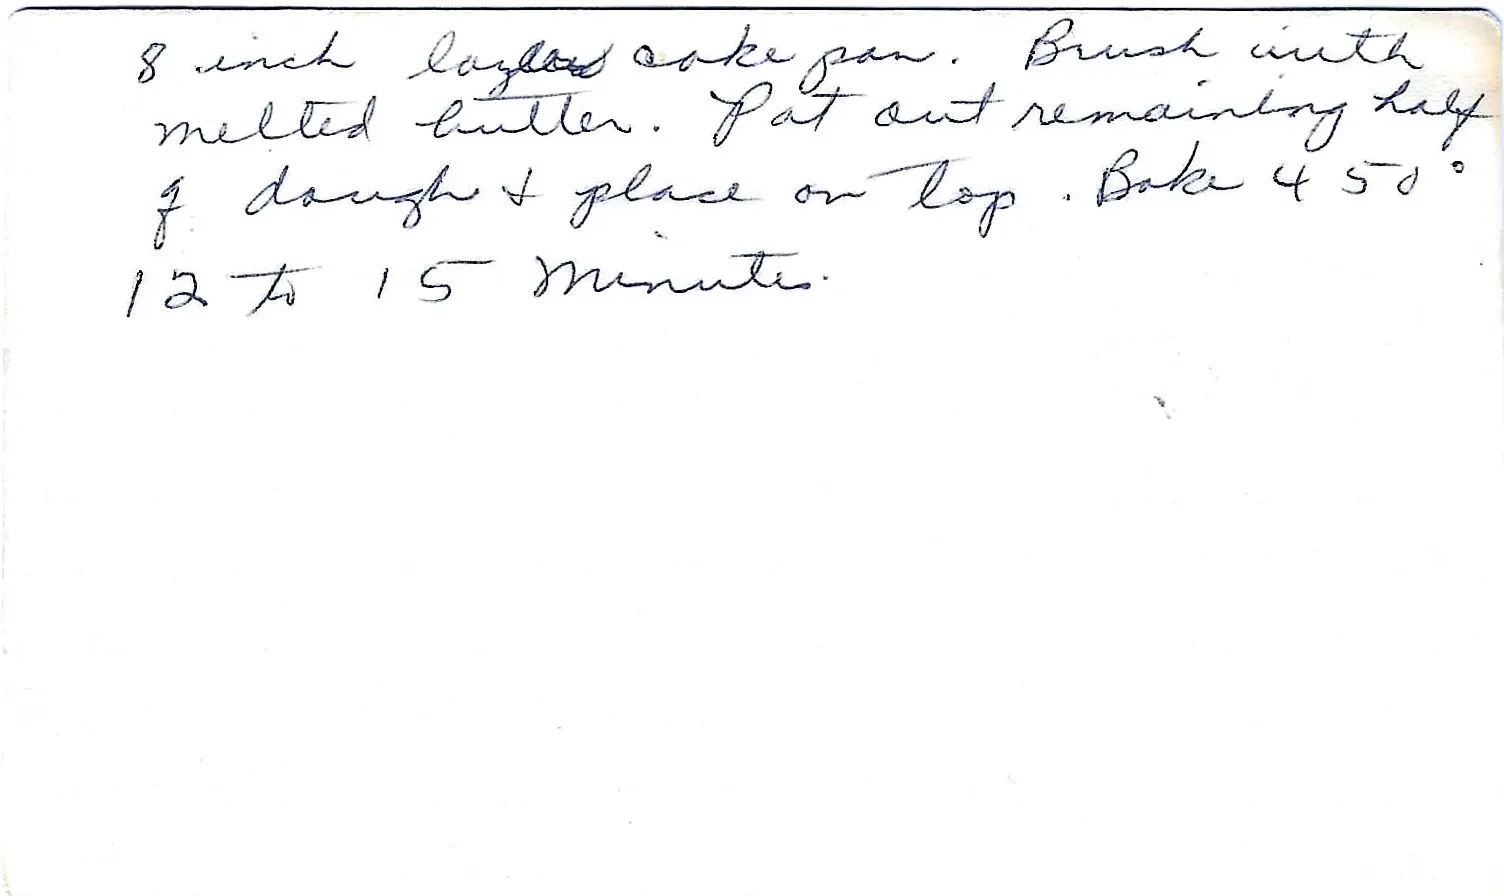 8 inch layer cake pan. Brush with
melted butter. Pat out remaining half
of dough & place on top. Bake 450°
12 to 15 Minutes.